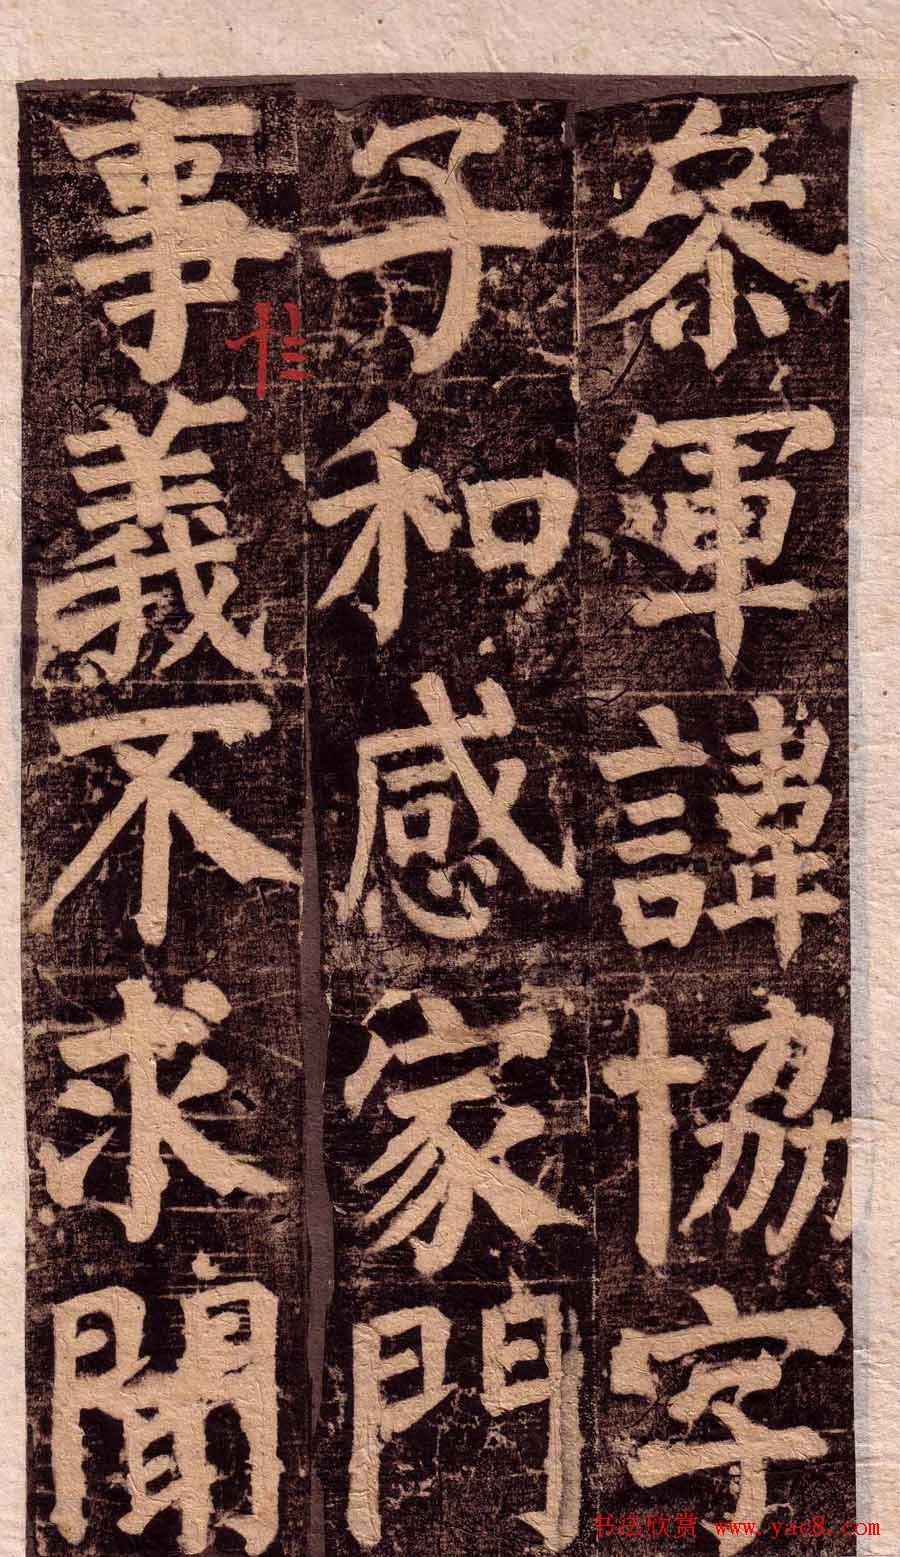 叅軍諱協字
子和感家門
事義不求聞
十三
书法欣赏 www.yac8.com